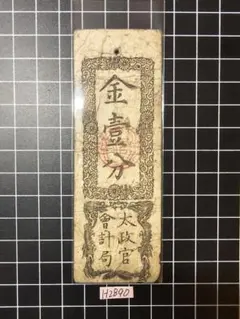 金壹分
太政官
會計局
H2890